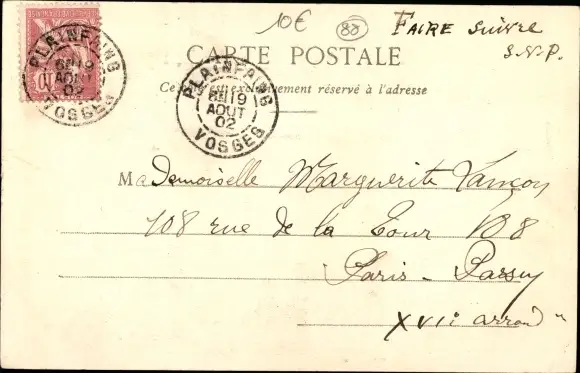 10€ 88 FAIRE SUIVRE
S.V.P.
CARTE POSTALE
Ce côté est exclusivement réservé à l'adresse
PLAINFAING
19
AOUT
02
VOSGES
PLAINFAING
19
AOUT
02
VOSGES
Mademoiselle Marguerite
108 rue de la Tour 108
Paris - Passy
XVIe arrond